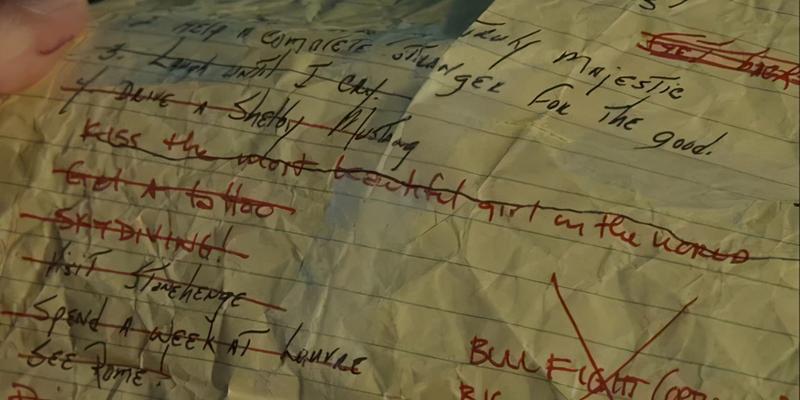 truly majestic
2. Help a complete stranger for the good.
3. Laugh until I cry.
4. Drive a Shelby Mustang
Kiss the most beautiful girl in the world
Get a tattoo
SKYDIVING!
Visit Stonehenge
Spend a week at Louvre
See Rome.
BULL FIGHT